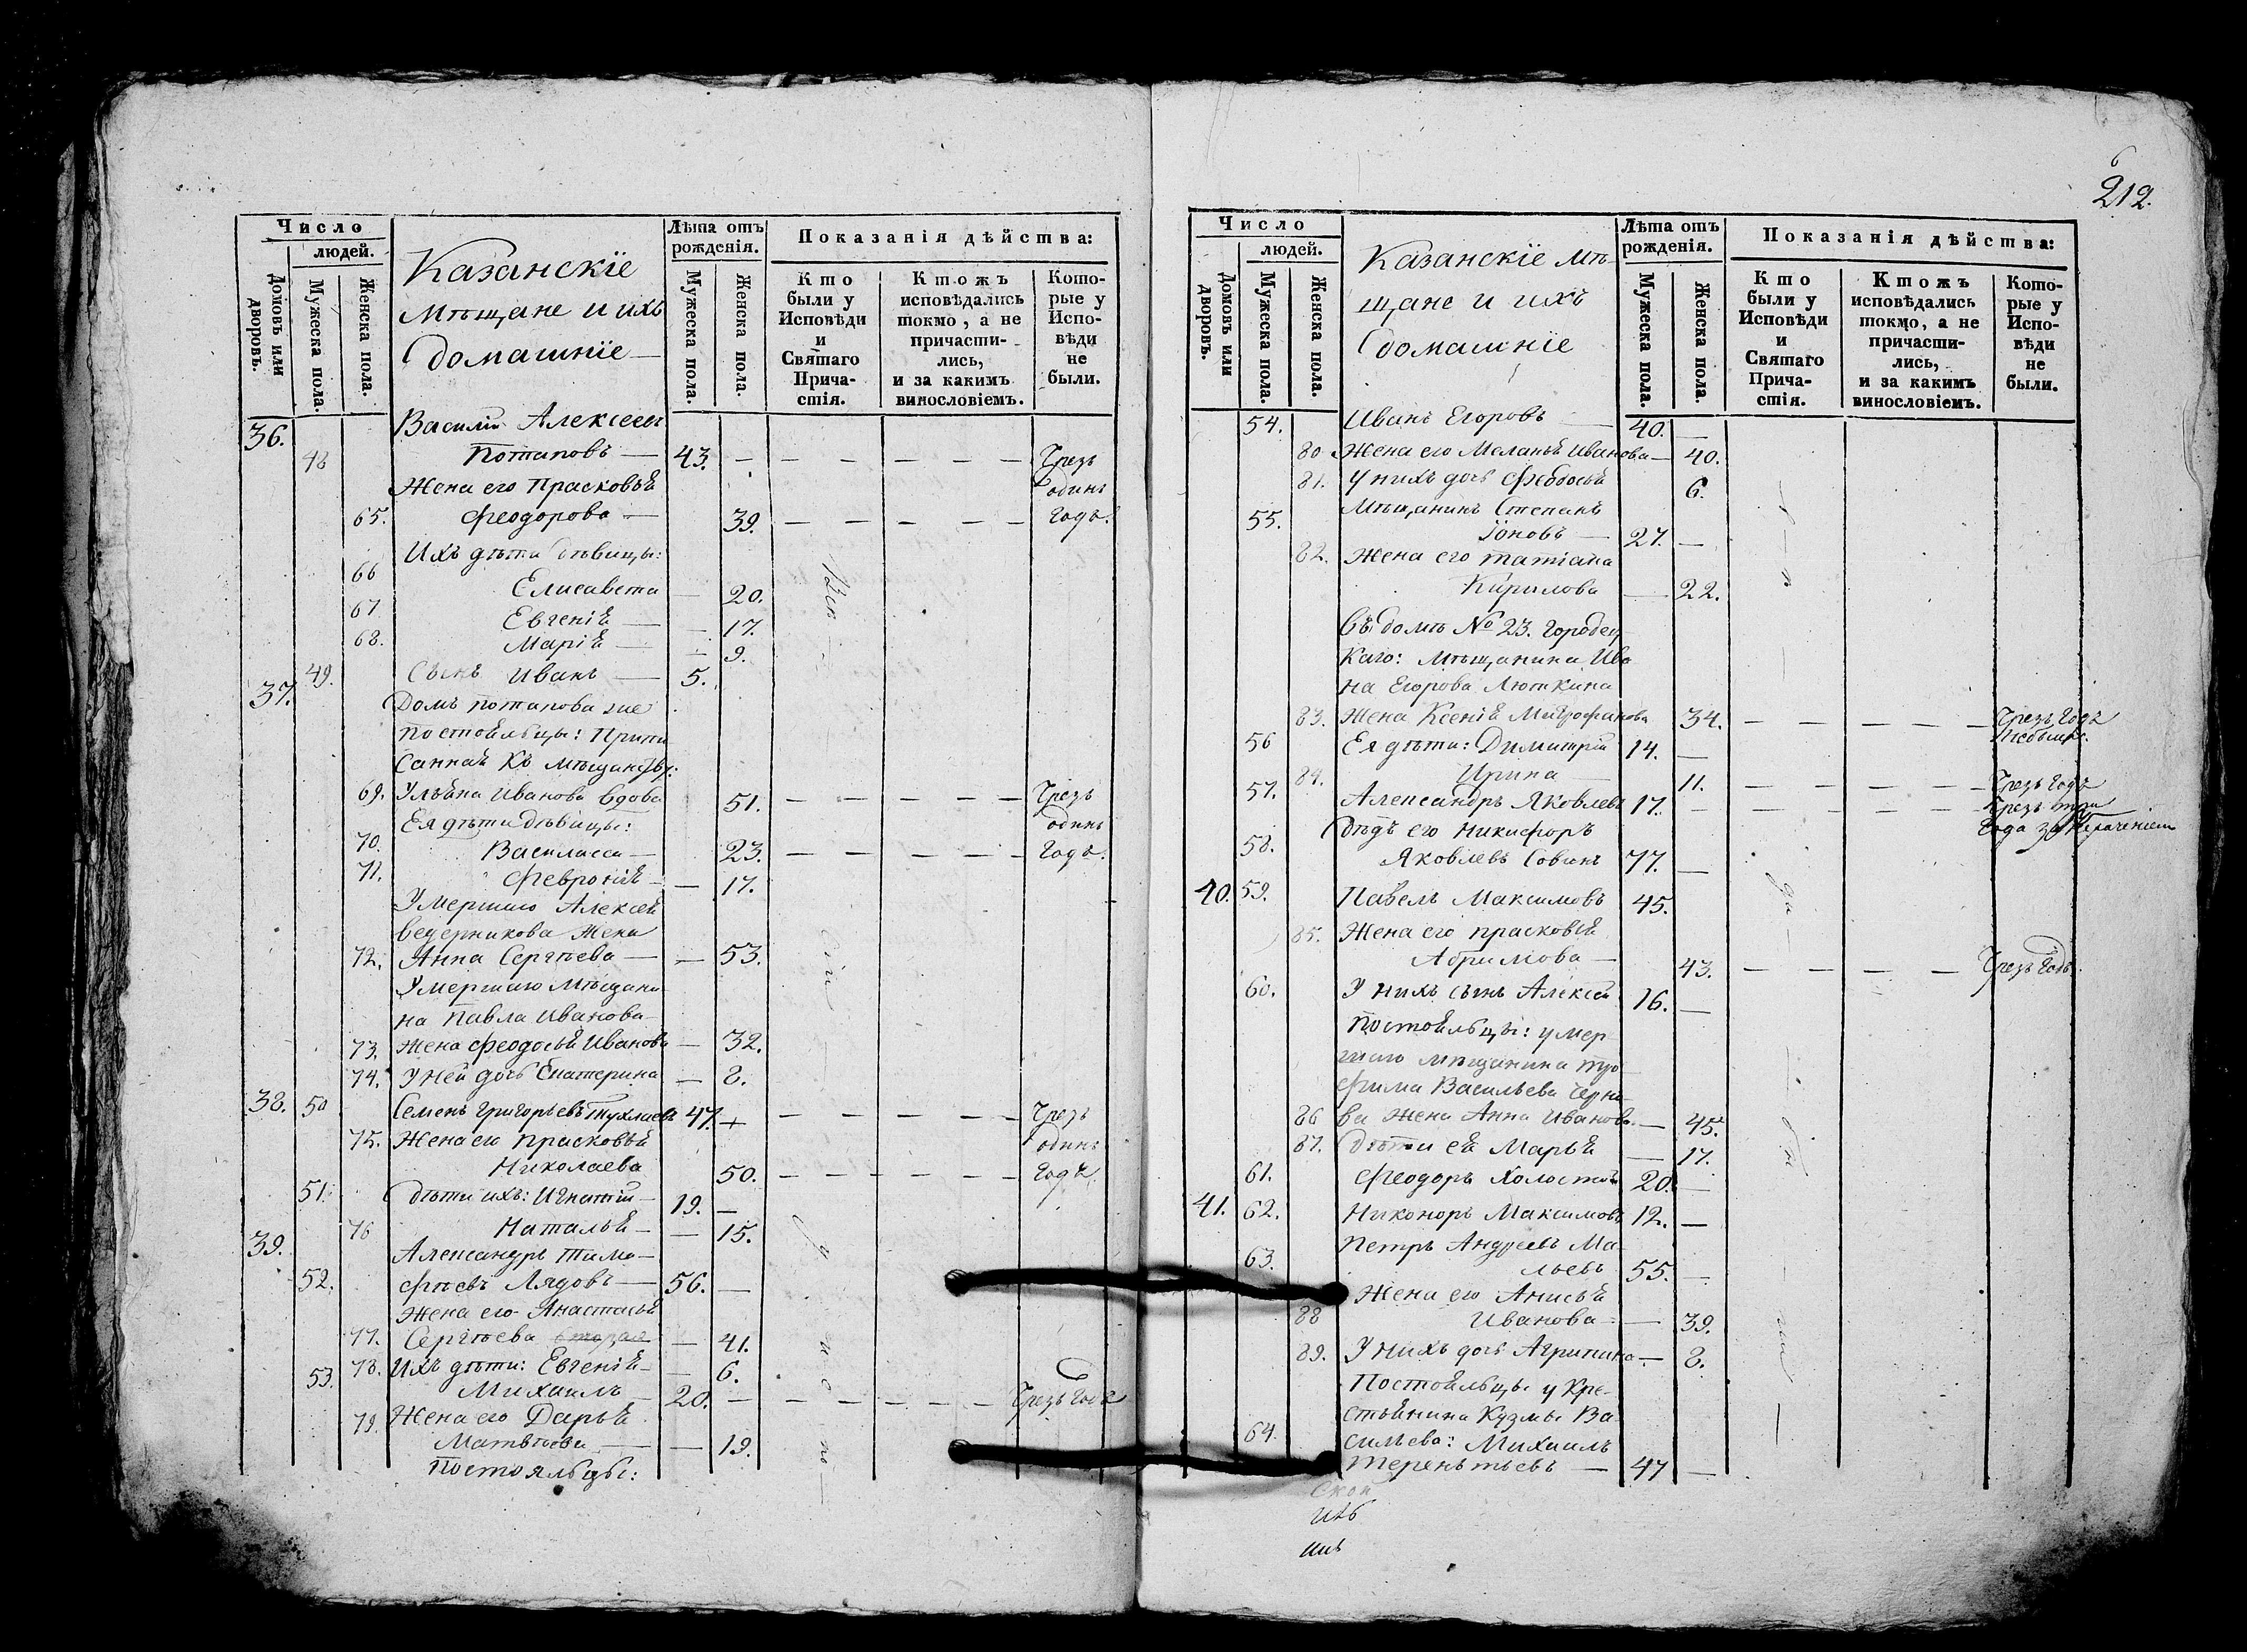 6
212.
Число
людей.
Домовъ или дворовъ.
Мужеска пола.
Женска пола.
Казанскіе
мѣщане и ихъ
домашніе
Лѣта отъ рожденія.
Мужеска пола.
Женска пола.
Показанія дѣйства:
Кто были у Исповѣди и Святаго Причастія.
Ктожъ исповѣдались токмо, а не причастились, и за какимъ винословіемъ.
Которые у Исповѣди не были.
36. Василій Алексеевъ
48 Потаповъ — 43. — — — — — — Чрезъ
Жена его Прасковья одинъ
65. Феодорова — 39. — — — — — годъ.
Ихъ дѣти дѣвицы:
66 Елисавета — 20.
67 Евгенія — — 17.
68. Марія — — 9.
49. Сынъ Иванъ — 5.
37. Домъ Потапова
постояльцы: Припи
санная къ мѣщанству:
69. Ульяна Иванова вдова 51. — — — — — Чрезъ
Ея дѣти дѣвицы: одинъ
70. Василисса — 23. — — — — — годъ.
71. Февронія — — 17.
Умершаго Алексея
Ведерникова жена
72. Анна Сергѣева — — 53.
Умершаго мѣщани
на Павла Иванова
73. Жена Феодосья Иванова — 32.
74. У ней дочь Екатерина — 8.
38. 50 Семенъ Григорьевъ Тухлаевъ 47. — — — — — Чрезъ
75. Жена его Прасковья одинъ
Николаева 50. — — — — — годъ.
51. Дѣти ихъ: Игнатій — 19. —
76 Наталья — — 15.
39. Александръ Тимо-
52. фѣевъ Лядовъ — 56. —
Жена его Анастасья
77. Сергѣева — 41.
78. Ихъ дѣти: Евгенія — — 6.
53. Михаилъ — 20. — — — — — — Чрезъ годъ
79. Жена его Дарья
Матвѣева — — 19.
Постояльцы:
Число
людей.
Домовъ или дворовъ.
Мужеска пола.
Женска пола.
Казанскіе мѣ-
щане и ихъ
домашніе
Лѣта отъ рожденія.
Мужеска пола.
Женска пола.
Показанія дѣйства:
Кто были у Исповѣди и Святаго Причастія.
Ктожъ исповѣдались токмо, а не причастились, и за какимъ винословіемъ.
Которые у Исповѣди не были.
54. Иванъ Егоровъ — 40. —
80 Жена его Меланья Иванова — 40.
81. У нихъ дочь Феодосья 6.
55. Мѣщанинъ Степанъ
Іоновъ — 27. —
82. Жена его Татіана
Кирилова — 22.
Въ домѣ № 23. городец
каго: мѣщанина Ива
на Егорова Люткина
83. Жена Ксенія Митрофанова 34. — — — — Чрезъ годъ
56 Ея дѣти: Димитрій 14. —
84. Ирина — 11. — — — — Чрезъ годъ
57. Александръ Яковлевъ 17. — — — — Чрезъ три
Дѣдъ его Никифоръ года за нерачениемъ
58. Яковлевъ Совинъ 77. —
40. 59. Павелъ Максимовъ 45.
85. Жена его Прасковья
Абрамова — 43. — — — — Чрезъ годъ.
60. У нихъ сынъ Алексей 16. —
Постояльцы: умер
шаго мѣщанина Тро
фима Васильева Черно-
86 ва жена Анна Иванова — 45.
87. Дѣти ея Марья — 17.
61. Феодоръ холостой 20. —
41. 62. Никоноръ Максимовъ 12. —
63. Петръ Андреевъ Ма-
льевъ 55. —
Жена его Анисья
88 Иванова — — 39.
89. У нихъ дочь Агрипина — 8.
Постояльцы у кре-
стьянина Кузмы Ва
64. сильева: Михаилъ
Терентьевъ — 47 —